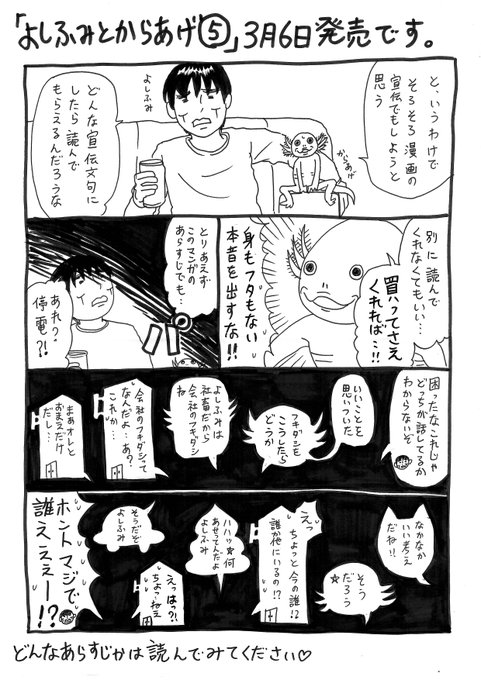 「よしふみとからあげ⑤」3月6日発売です。
と、いうわけで
そろそろ漫画の
宣伝でもしようと
思う
からあげ
よしふみ
どんな宣伝文句に
したら読んで
もらえるんだろうな
別に読んで
くれなくてもいい…
買ってさえ
くれれば…!!
身もフタもない
本音を出すな!!
とりあえず
このマンガの
あらすじでも…
あれ?
停電?!
困ったなこれじゃ
どっちが話してるか
わからないぞ
いいことを
思いついた
フキダシを
こうしたら
どうか
よしふみは
社畜だから
会社のフキダシ
ね
会社のフキダシって
なんだよ…あ?
これか…
まあオレと
おまえだけ
だし…
なかなか
いい考え
だね!!
そう
だろう
☆
えっ
ちょっと今の誰!?
誰か他にいるの!?
ハハッ☆何
あせってんだよ
よしふみ
そうだぞ
よしふみ
えっはっ?!
ちょっ…ねえ
ホントマジで
誰ぇぇぇー!?
どんなあらすじかは読んでみてください♡